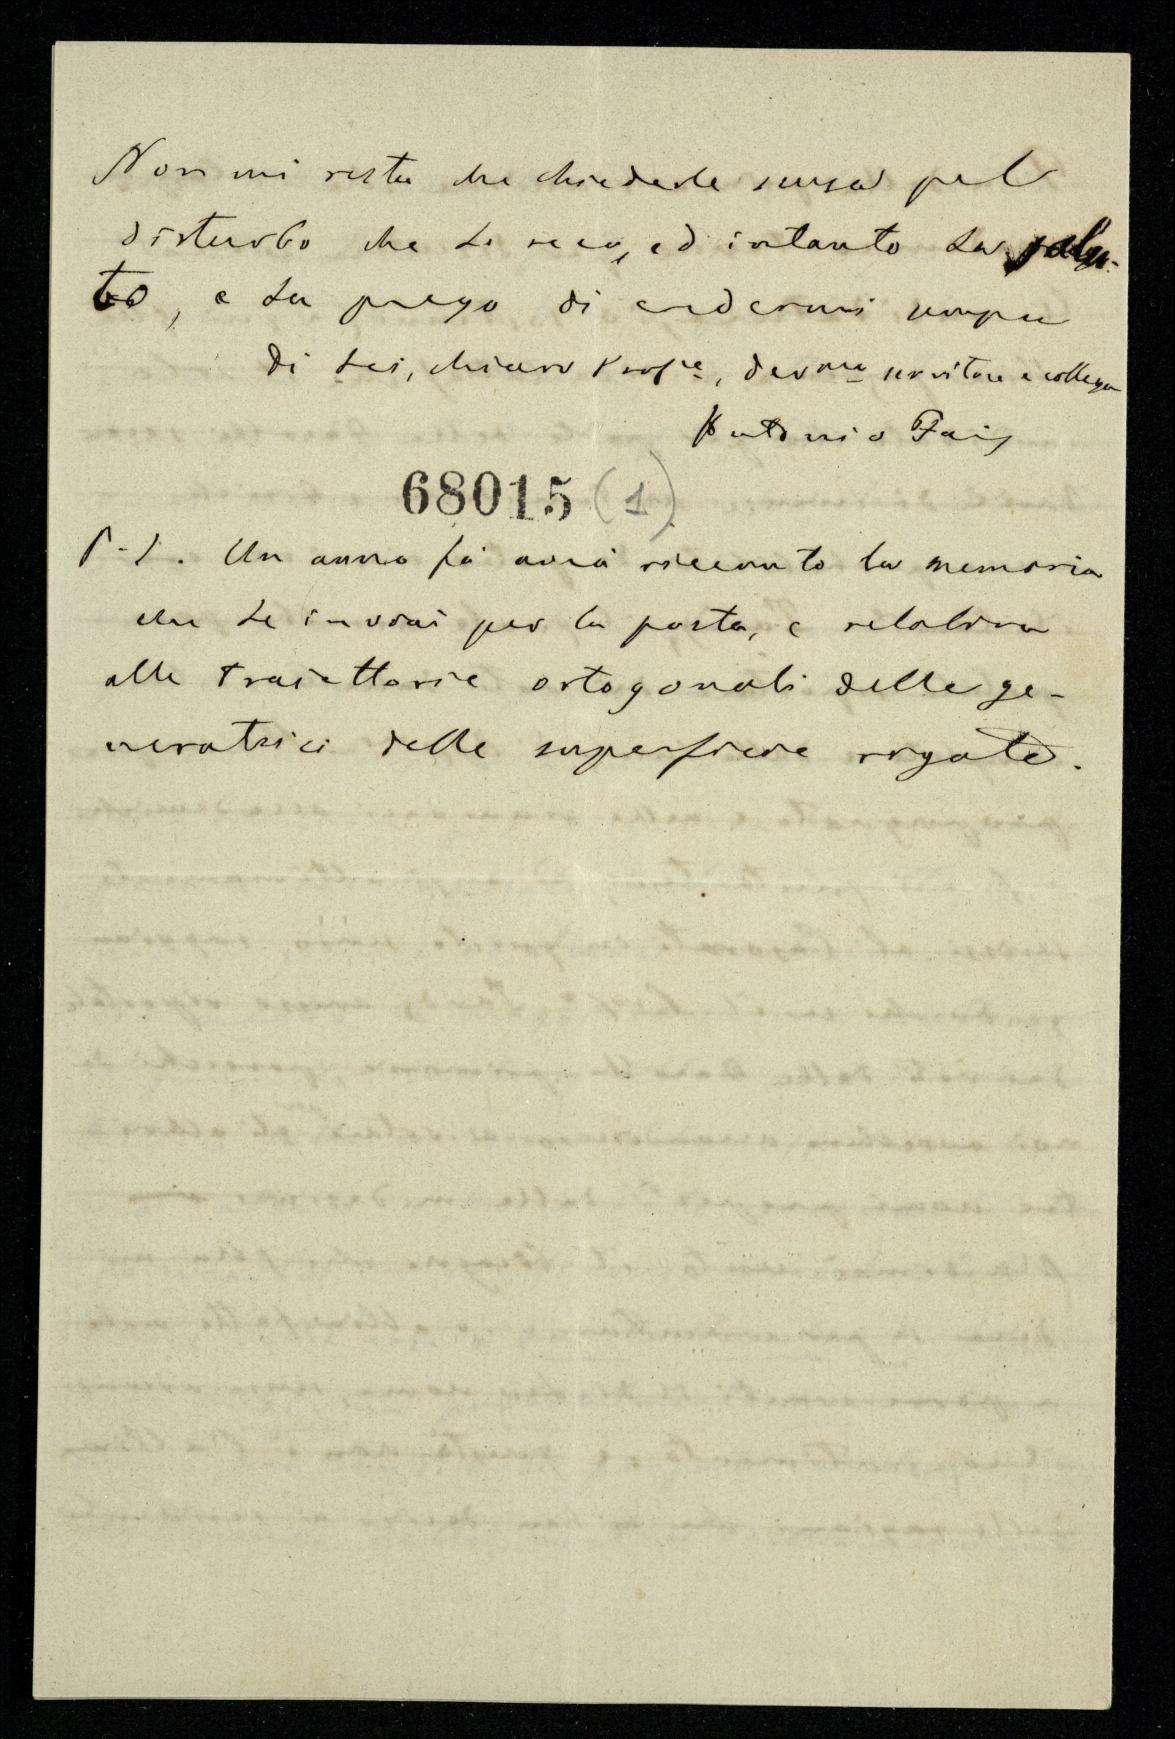 Non mi resta che chiederle scusa pel
disturbo che Le reco, ed intanto La salu-
to, e La prego di credermi sempre
Di Lei, chiaro Profre, devmo servitore e collega
Antonio Fais
68015 (1)
P.S. Un anno fà avrà ricevuto la memoria
che Le inviai per la posta, e relativa
alle traiettorie ortogonali delle ge-
neratrici delle superficie rigate.